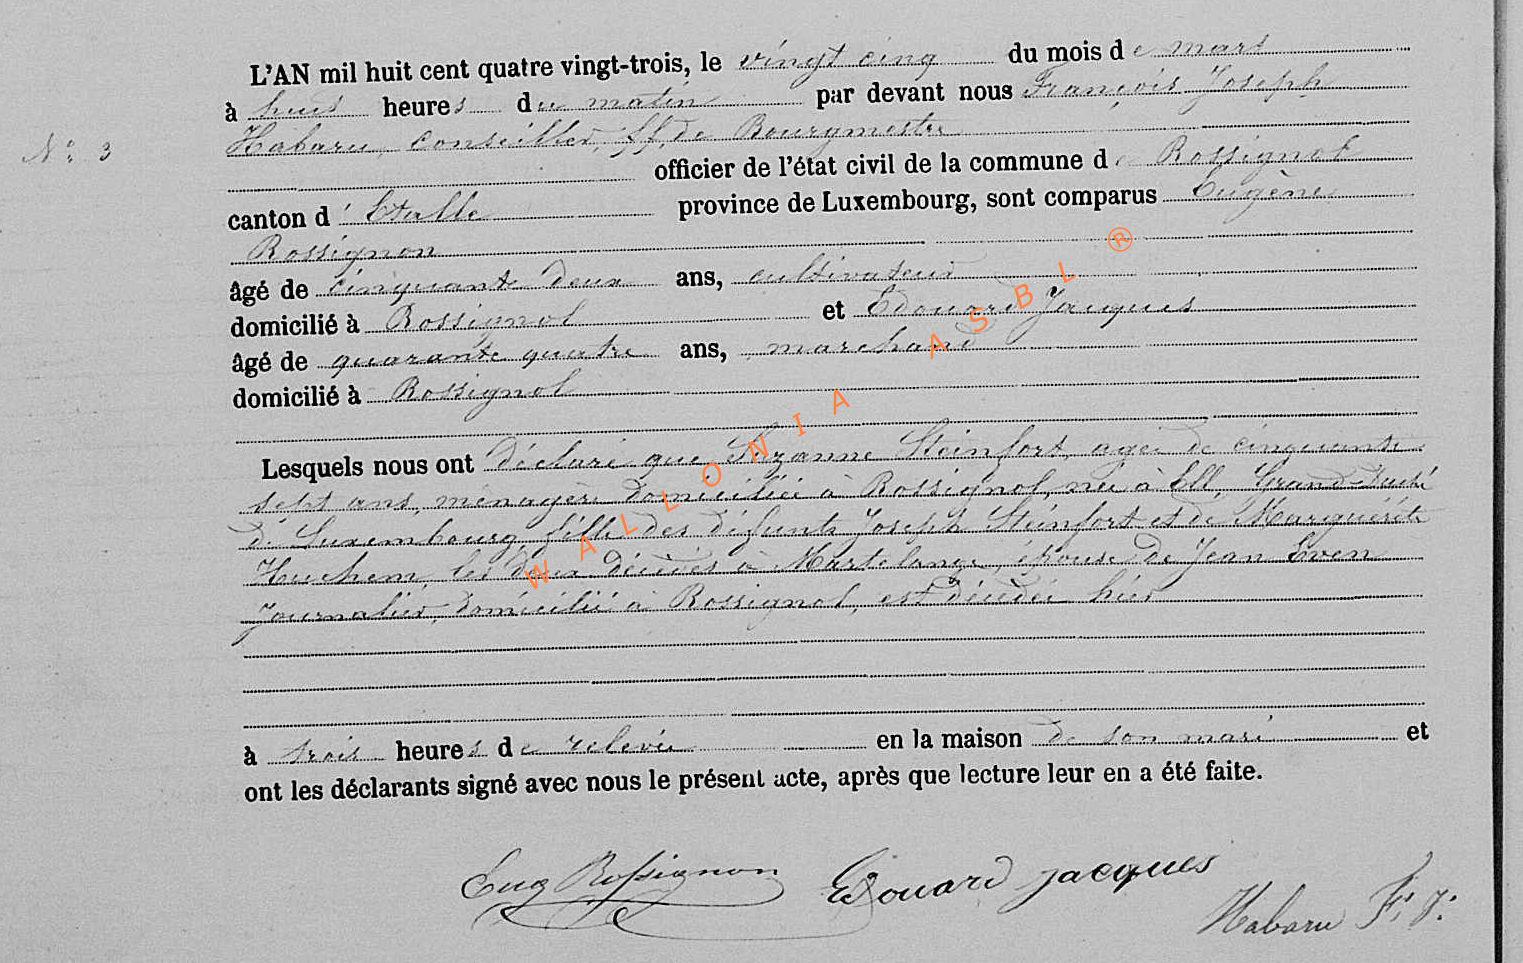 L'AN mil huit cent quatre vingt-trois, le vingt cinq du mois de mars
à huit heures du matin par devant nous François Joseph
Habaru, Conseiller, ff, de Bourgmestre
N° 3
officier de l'état civil de la commune de Rossignol
canton d'Etalle province de Luxembourg, sont comparus Eugène
Rossignon
âgé de cinquante deux ans, cultivateur
domicilié à Rossignol et Edouard Jacques
âgé de quarante quatre ans, marchand
domicilié à Rossignol
Lesquels nous ont déclaré que Suzanne Steinfort, agée de cinquante
sept ans, ménagère domiciliée à Rossignol, née à Ell, Grand-Duché
de Luxembourg, fille des défunts Joseph Steinfort et de Marguérite
Huchem, les deux décédés à Martelange, épouse de Jean Even
Journalier, domicilié à Rossignol, est décédée hier
à trois heures de relevée en la maison de son mari et
ont les déclarants signé avec nous le présent acte, après que lecture leur en a été faite.
Eug Rossignon Edouard Jacques
Habaru F. J.
WALLONIA ASBL ®